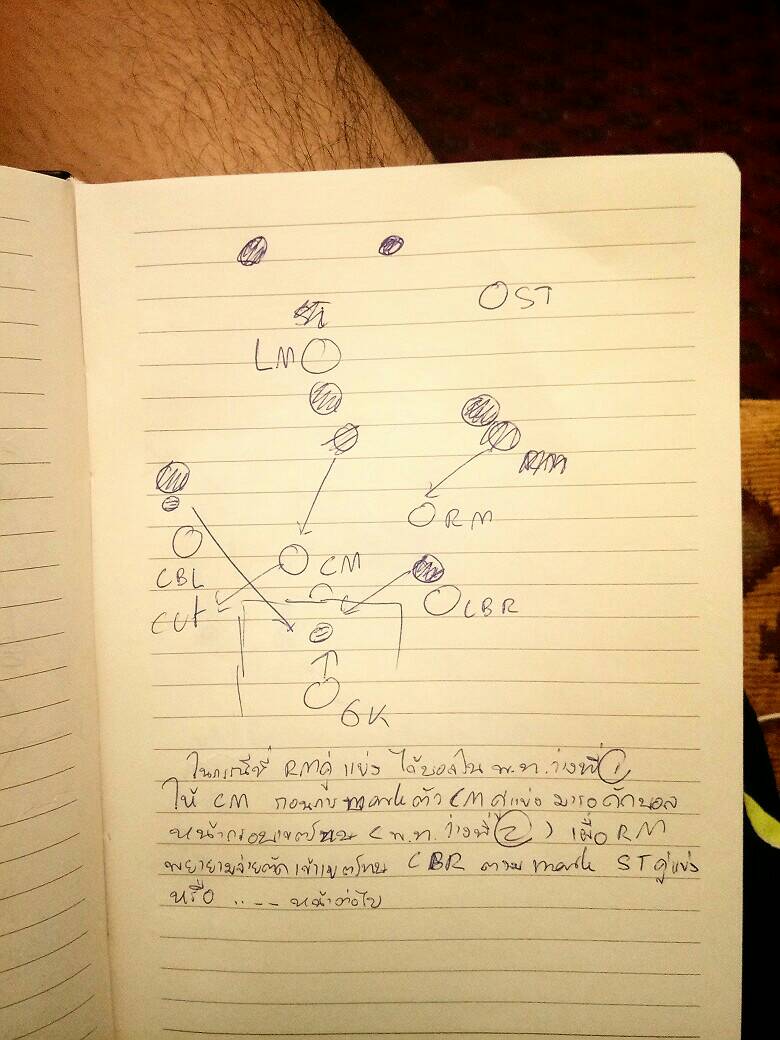 ST
LM
RM
CBL
CM
CUT
CBR
GK
ในกรณีที่ RM คู่แข่ง ได้บอลใน พ.ท. ว่างที่ 1
ให้ CM ถอนการ mark ตัว CM คู่แข่ง มารอดักบอล
หน้ากรอบเขตโทษ (พ.ท. ว่างที่ 2) เผื่อ RM
พยายามจ่ายตัดเข้าเขตโทษ CBR ตาม mark ST คู่แข่ง
หรือ ..-- หน้าต่อไป